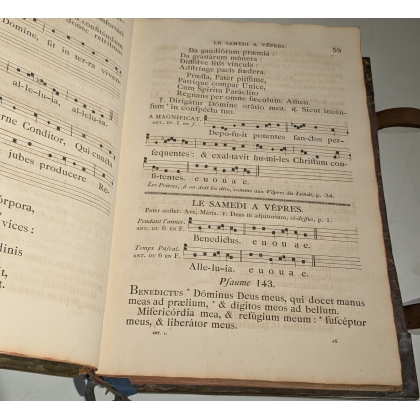 Dómine, sit in ter-ra vivens
al-le-lu-ia, alleluia.
erne Conditor, Qui cuncta
jubes producero Re-
órpora,
vices:
dinis
át,
LE SAMEDI A VÊPRES. 59
Da gaudiórum præmia:
Da gratiárum múnera:
Dissólve litis víncula:
Adstringe pacis fœdera.
Præsta, Pater piíssime,
Patrique compar Unice,
Cum Spíritu Paráclito
Regnans per omne sæculum. Amen.
℣. Dirigátur Dómine orátio mea. ℟. Sicut incén-
sum in conspéctu tuo.
A MAGNIFICAT.
ANT. DU I en f.
Depo-su-it potentes sanctos per-
sequentes: & exal-tavit hu-mi-les Christum con-
fi-tentes. e u o u a e.
Les Prières, s'on doit les dire, comme aux Vêpres du Lundi, p. 34.
LE SAMEDI A VÊPRES.
Pater noster. Ave, María. ℣. Deus in adjutórium, ci-dessus, p. 1.
Pendant l'année.
ANT. DU 6 EN F.
Benedictus. e u o u a e.
Temps Pascal.
ANT. DU 6 EN F.
Alle-lu-ia. e u o u a e.
Psaume 143.
BENEDICTUS * Dóminus Deus meus, qui docet manus
meas ad prælium, * & dígitos meos ad bellum.
Misericórdia mea, & refúgium meum: * suscéptor
meus, & liberátor meus.